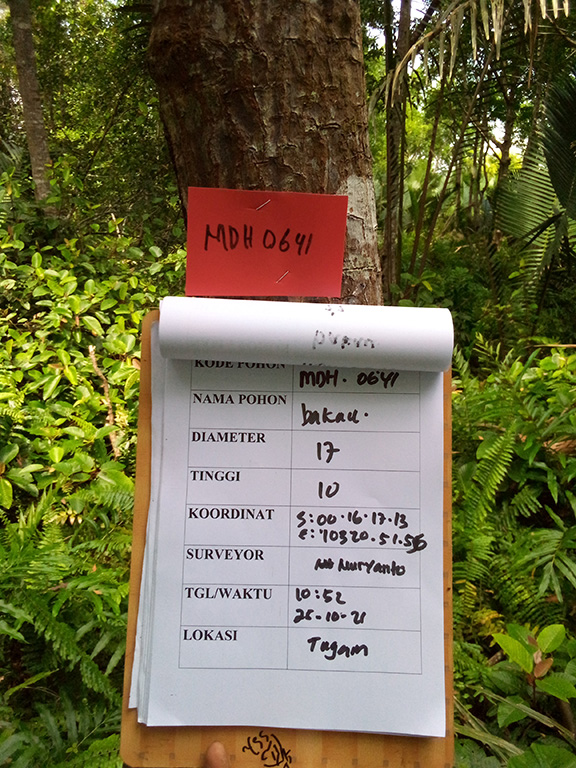 MDH 0641
KODE POHON MDH. 0641
NAMA POHON bakau.
DIAMETER 17
TINGGI 10
KOORDINAT S:00.16.17.13
E:10320.51.56
SURVEYOR Nuryanto
TGL/WAKTU 10:52
25-10-21
LOKASI Tugam